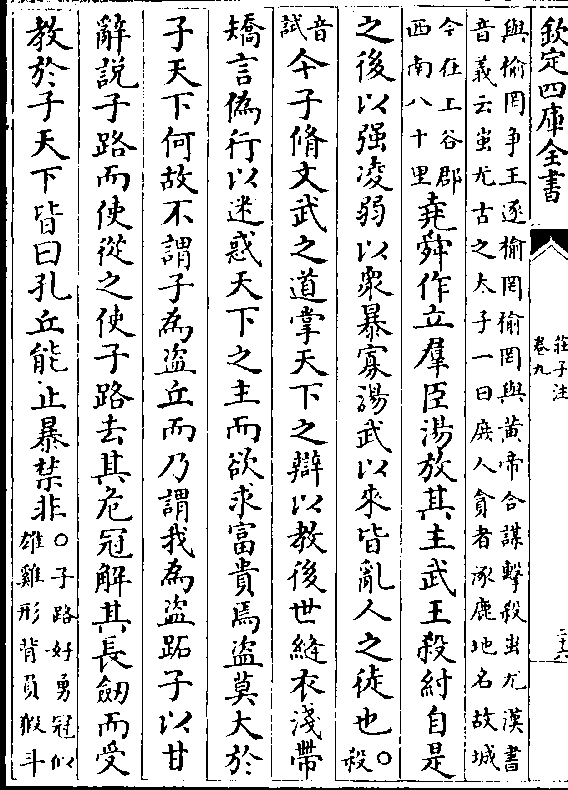 欽定四庫全書
莊子注
卷九
與榆罔爭王逐榆罔榆罔與黃帝合謀擊殺蚩尤漢書
音義云蚩尤古之天子一曰庶人貪者涿鹿地名故城
今在上谷郡
西南八十里
堯舜作立羣臣湯放其主武王殺紂自是
之後以强凌弱以衆暴寡湯武以來皆亂人之徒也○殺
音
試
今子脩文武之道掌天下之辯以教後世縫衣淺帶
矯言偽行以迷惑天下之主而欲求富貴焉盜莫大於
子天下何故不謂子為盜丘而乃謂我為盜跖子以甘
辭說子路而使從之使子路去其危冠解其長劒而受
教於子天下皆曰孔丘能止暴禁非
○子路好勇冠似
雄雞形背負猳斗